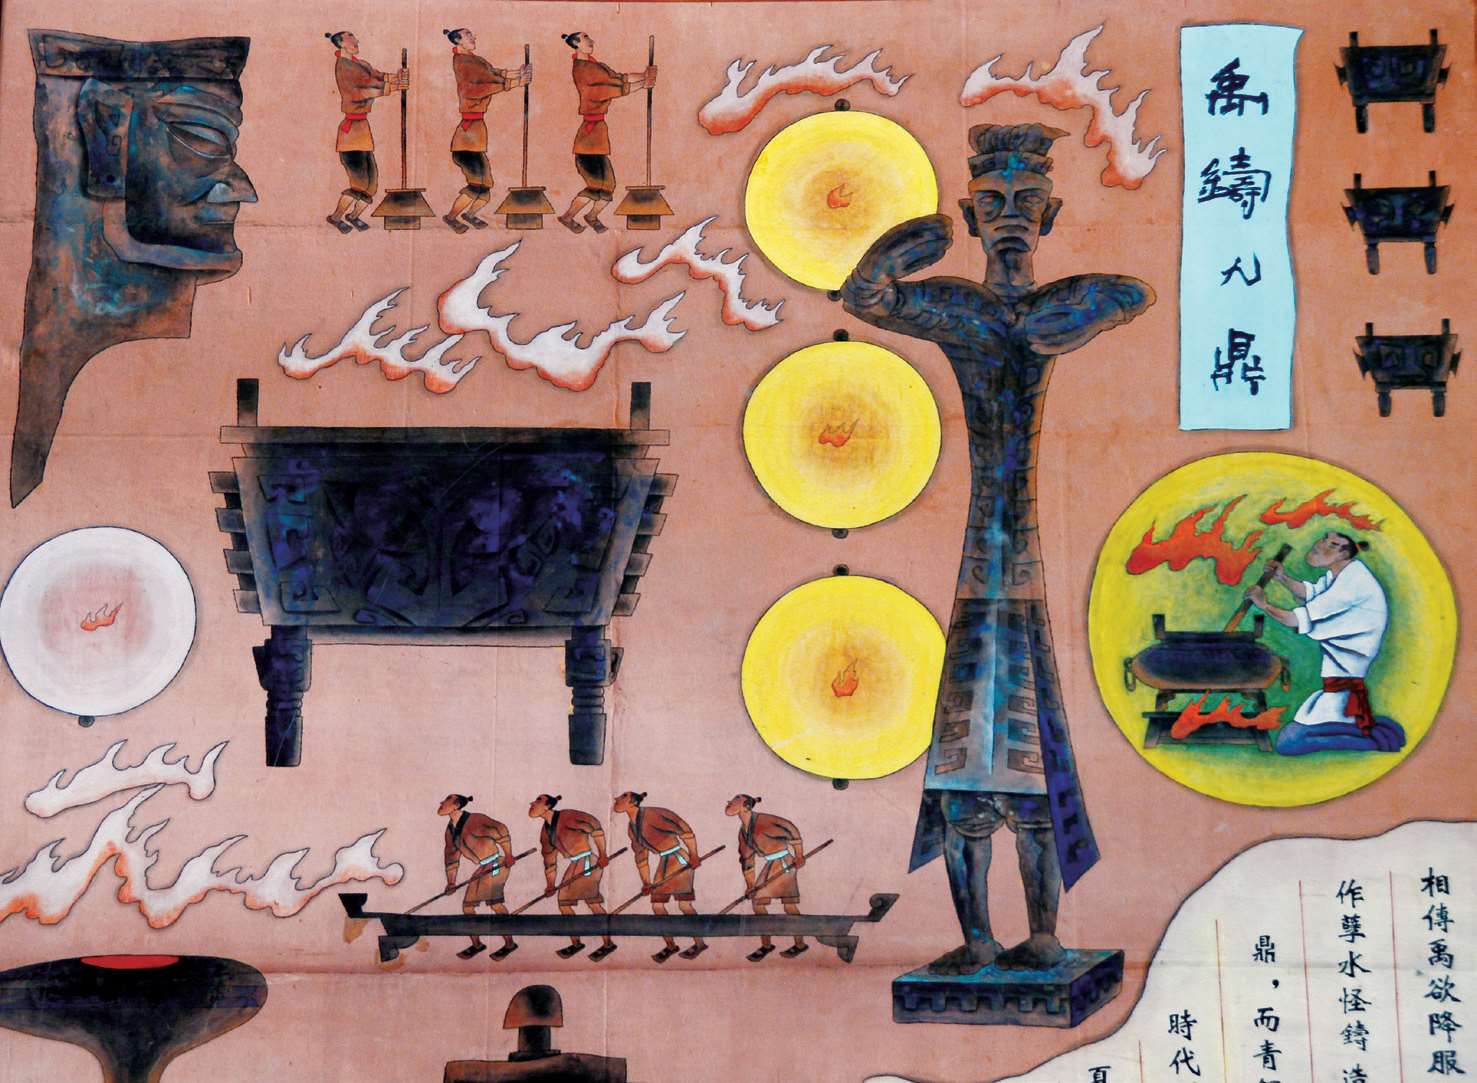 禹鑄九鼎
相傳禹欲降服
作孽水怪鑄造
鼎，而青
時代
夏